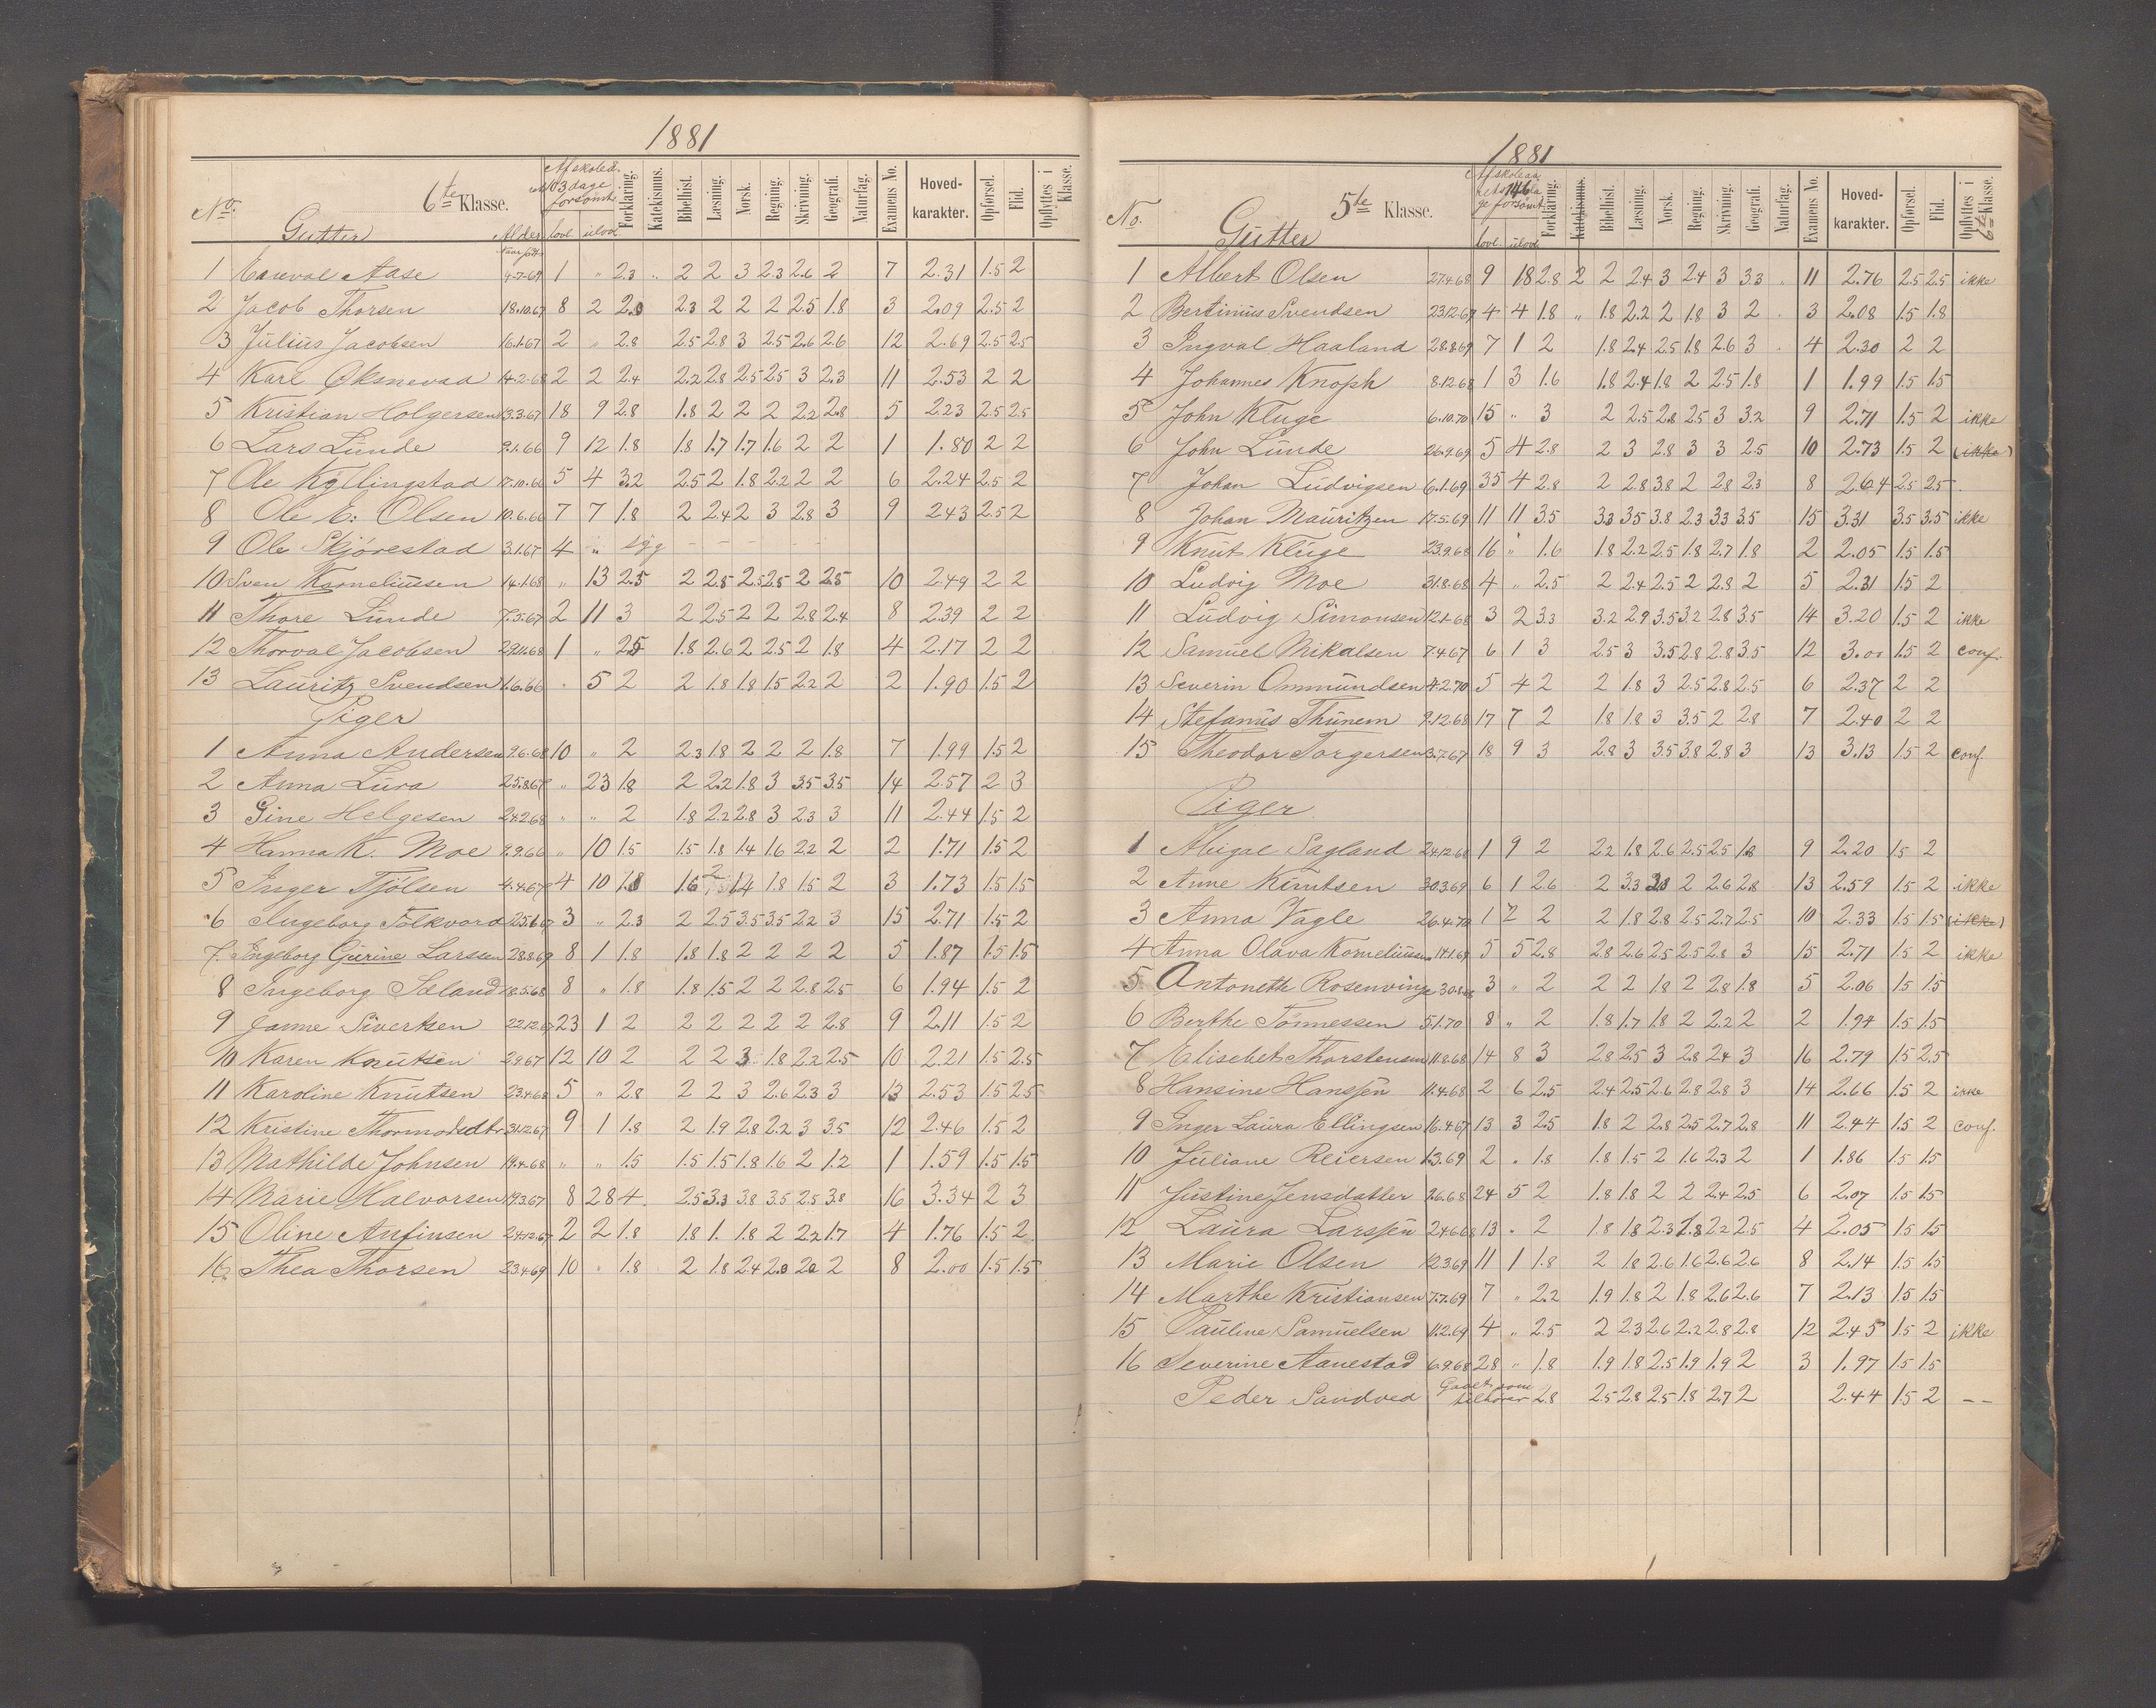 1881
No. 6te Klasse. Af skoled. 103 dage forsömt Forklaring. Katekismus. Bibelhist. Læsning. Norsk. Regning. Skrivning. Geografi. Naturfag. Examens No. Hoved-karakter. Opförsel. Flid. Opflyttes i Klasse.
Gutter Alder lovl. ulovl.
1 Eneval Aase 4-7-69 1 " 2.3 " 2 2 3 2.3 2.6 2 7 2.31 1.5 2
2 Jacob Thorsen 18.10.67 8 2 2.0 2.3 2 2 2 2.5 1.8 3 2.09 2.5 2
3 Julius Jacobsen 16.1.67 2 " 2.8 2.5 2.8 3 2.5 2.6 2.6 12 2.69 2.5 2.5
4 Karl Oksnevad 14.2.68 2 2 2.4 2.2 2.8 2.5 2.5 3 2.3 11 2.53 2 2
5 Kristian Holgersen 13.3.67 18 9 2.8 1.8 2 2 2 2.2 2.8 5 2.23 2.5 2.5
6 Lars Lunde 9.1.66 9 12 1.8 1.8 1.7 1.7 1.6 2 2 1 1.80 2 2
7 Ole Kyllingstad 17.10.66 5 4 3.2 2.5 2 1.8 2.2 2 2 6 2.24 2.5 2
8 Ole E. Olsen 10.6.66 7 7 1.8 2 2.4 2 3 2.8 3 9 2.43 2.5 2
9 Ole Skjørestad 3.1.67 4 " syg
10 Sven Korneliussen 14.1.68 " 13 2.5 2 2.8 2.5 2.8 2 2.5 10 2.49 2 2
11 Thore Lunde 7.5.67 2 11 3 2 2.5 2 2 2.8 2.4 8 2.39 2 2
12 Thorval Jacobsen 29.11.68 1 " 2.5 1.8 2.6 2 2.5 2 1.8 4 2.17 2 2
13 Lauritz Svendsen 1.6.66 " 5 2 2 1.8 1.8 1.5 2.2 2 2 1.90 1.5 2
Piger
1 Anna Andersen 9.6.68 10 " 2 2.3 1.8 2 2 2 1.8 7 1.99 1.5 2
2 Anna Lura 25.8.67 " 23 1.8 2 2.2 1.8 3 3.5 3.5 14 2.57 2 3
3 Gine Helgesen 24.2.68 " " 2 1.8 2.2 2.8 3 2.3 3 11 2.44 1.5 2
4 Hanna K. Moe 9.9.66 " 10 1.5 1.5 1.8 1.4 1.6 2.2 2 2 1.71 1.5 2
5 Inger Tjölsen 4.4.67 4 10 1.8 1.6 2 1.4 1.8 1.5 2 3 1.73 1.5 1.5
6 Ingeborg Folkvord 25.1.67 3 " 2.3 2 2.5 3.5 3.5 2.2 3 15 2.71 1.5 2
7 Ingeborg Gurine Larssen 28.8.69 8 1 1.8 1.8 1.8 2 2 2 2 5 1.87 1.5 1.5
8 Ingeborg Sæland 18.5.68 8 " 1.8 1.8 1.5 2 2 2.8 2.5 6 1.94 1.5 2
9 Janne Sivertsen 22.12.67 23 1 2 2 2 2 2 2 2.8 9 2.11 1.5 2
10 Karen Knutsen 2.9.67 12 10 2 2 2 3 1.8 2.2 2.5 10 2.21 1.5 2.5
11 Karoline Knutsen 23.4.68 5 " 2.8 2 2 3 2.6 2.3 3 13 2.53 1.5 2.5
12 Kristine Thormodsdtr 31.12.67 9 1 1.8 2 1.9 2.8 2.2 3 3.5 12 2.46 1.5 2
13 Mathilde Johnsen 19.4.68 " " 1.5 1.5 1.5 1.8 1.6 2 1.2 1 1.59 1.5 1.5
14 Marie Halvorsen 19.3.67 8 28 4 2.5 3.3 3.8 3.5 2.5 3.8 16 3.34 2 3
15 Oline Anfinsen 24.12.67 2 2 1.8 1.8 1. 1.8 2 2.2 1.7 4 1.76 1.5 2
16 Thea Thorsen 23.4.69 10 " 1.8 2 1.8 2.4 2.0 2.0 2 8 2.00 1.5 1.5
1881
No. 5te Klasse. 146 Forklaring. Katekismus. Bibelhist. Læsning. Norsk. Regning. Skrivning. Geografi. Naturfag. Examens No. Hoved-karakter. Opförsel. Flid. Opflyttes i 6te Klasse.
Gutter lovl. ulovl.
1 Albert Olsen 27.4.68 9 18 2.8 2 2 2.4 3 2.4 3 3.3 " 11 2.76 2.5 2.5 ikke
2 Bertinius Svendsen 23.12.67 4 4 1.8 " 1.8 2.2 2 1.8 3 2 3 2.08 1.5 1.8
3 Ingval Haaland 28.8.69 7 1 2 1.8 2.4 2.5 1.8 2.6 3 4 2.30 2 2
4 Johannes Knoph 8.12.68 1 3 1.6 1.8 2.4 1.8 2 2.5 1.8 1 1.99 1.5 1.5
5 John Kluge 6.10.70 15 " 3 2 2.5 2.8 2.5 3 3.2 9 2.71 1.5 2 ikke
6 John Lunde 26.9.69 5 4 2.8 2 3 2.8 3 3 2.5 10 2.73 1.5 2 (ikke)
7 Johan Ludvigsen 6.1.69 35 4 2.8 2 2.8 3.8 2 2.8 2.3 8 2.64 2.5 2.5
8 Johan Mauritzen 17.5.69 11 11 3.5 3.3 3.5 3.8 2.3 3.3 3.5 15 3.31 3.5 3.5 ikke
9 Knut Kluge 23.9.68 16 " 1.6 1.8 2.2 2.5 1.8 2.7 1.8 2 2.05 1.5 1.5
10 Ludvig Moe 31.8.68 4 " 2.5 2 2.4 2.5 2 2.8 2 5 2.31 1.5 2
11 Ludvig Simonsen 12.1.68 3 2 3.3 3.2 2.9 3.5 3.2 2.8 3.5 14 3.20 1.5 2 ikke
12 Samuel Mikalsen 7.4.67 6 1 3 2.5 3 3.5 2.8 2.8 3.5 12 3.00 1.5 2 conf.
13 Severin Ommundsen 4.2.70 5 4 2 2 1.8 3 2.5 2.8 2.5 6 2.37 2 2
14 Stefanus Thunem 9.12.68 17 7 2 1.8 1.8 3 3.5 2 2.8 7 2.40 2 2
15 Theodor Torgersen 3.7.67 18 9 3 2.8 3 3.5 3.8 2.8 3 13 3.13 1.5 2 conf.
Piger
1 Abigal Sagland 24.12.68 1 9 2 2.2 1.8 2.6 2.5 2.5 1.8 9 2.20 1.5 2
2 Anne Knutsen 30.3.69 6 1 2.6 2 3.3 2.8 2 2.6 2.8 13 2.59 1.5 2 ikke
3 Anna Vagle 26.4.70 1 2 2 2 1.8 2.8 2.5 2.7 2.5 10 2.33 1.5 1.5 (ikke)
4 Anna Olava Korneliussen 14.1.69 5 5 2.8 2.8 2.6 2.5 2.5 2.8 3 15 2.71 1.5 2 ikke
5 Antoneth Rosenvinge 30.8.68 3 " 2 2 2 1.8 2 2.8 1.8 5 2.06 1.5 1.5
6 Berthe Tönnessen 5.1.70 8 " 2 1.8 1.7 1.8 2 2.2 2 2 1.94 1.5 1.5
7 Elischet Thorstensen 11.8.68 14 8 3 2.8 2.5 3 2.8 2.4 3 16 2.79 1.5 2.5
8 Hansine Hanssen 11.4.68 2 6 2.5 2.4 2.5 2.6 2.8 2.8 3 14 2.66 1.5 2 ikke
9 Inger Laura Ellingsen 16.4.67 13 3 2.5 1.8 2 2.8 2.5 2.7 2.8 11 2.44 1.5 2 conf.
10 Juliane Reiersen 1.3.69 2 " 1.8 1.8 1.5 2 1.6 2.3 2 1 1.86 1.5 1.5
11 Justine Jensdatter 9.6.68 24 5 2 1.8 1.8 2 2 2.4 2.5 6 2.07 1.5 1.5
12 Laura Larssen 24.6.68 13 " 2 1.8 1.8 2.3 1.8 2.2 2.5 4 2.05 1.5 1.5
13 Marie Olsen 12.3.69 11 1 1.8 2 1.8 2.6 1.6 2.6 2.6 8 2.14 1.5 1.5
14 Marthe Kristiansen 7.7.69 7 " 2.2 1.9 1.8 2 1.8 2.6 2.6 7 2.13 1.5 1.5
15 Pauline Samuelsen 11.2.69 4 " 2.5 2 2.3 2.6 2.2 2.8 2.8 12 2.45 1.5 2 ikke
16 Severine Aanestad 6.9.68 28 " 1.8 1.9 1.8 2.5 1.9 1.9 2 3 1.97 1.5 1.5
Peder Sandved 2.8 2.5 2.8 2.5 1.8 2.7 2 2.44 1.5 2 - -